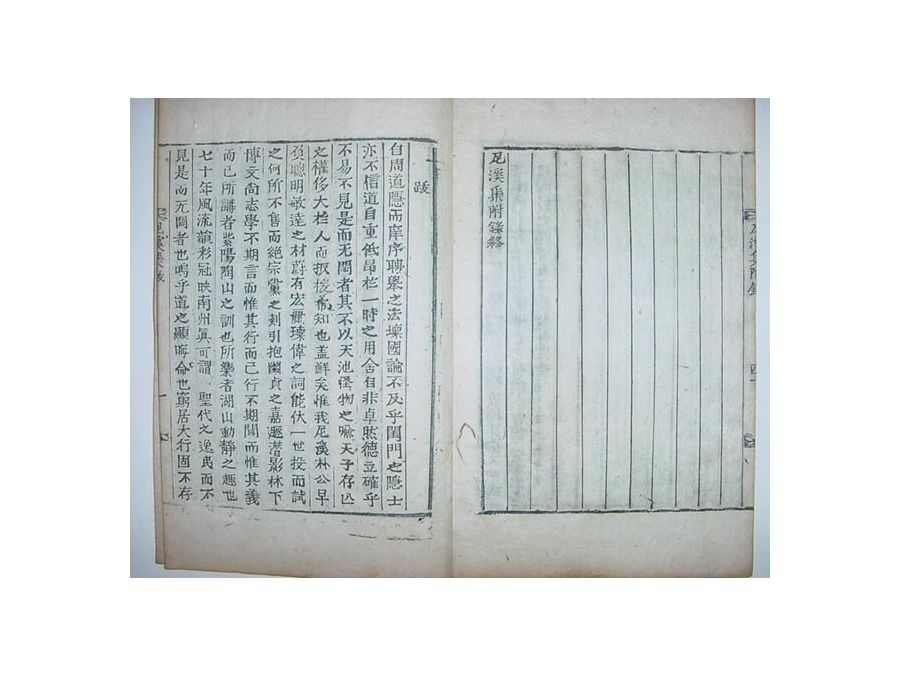 尼溪集附錄終
尼溪集附錄
跋
自周道隱而庠序聘舉之法壞國論不及乎閨門之隱士
亦不信道自重低昂於一時之用舍自非卓然德立確乎
不易不見是而无悶者其不以天池怪物之喩天子存亾
之權侈大於人而扳援知也盖鮮矣惟我尼溪朴公早
負聰明敏達之材蔚有宏麗瓌偉之詞能伏一世投而試
之何所不售而絶宗黨之剡引抱幽貞之嘉遯潜影林下
博文尙志學不期言而惟其行而已行不期聞而惟其義
而已所講者紫陽陶山之訓也所樂者湖山動靜之趣也
七十年風流韻彩冠映南州眞可謂聖代之逸民而不
見是而无悶者也嗚乎道之顯晦命也窮居大行固不存
尼溪集跋
一